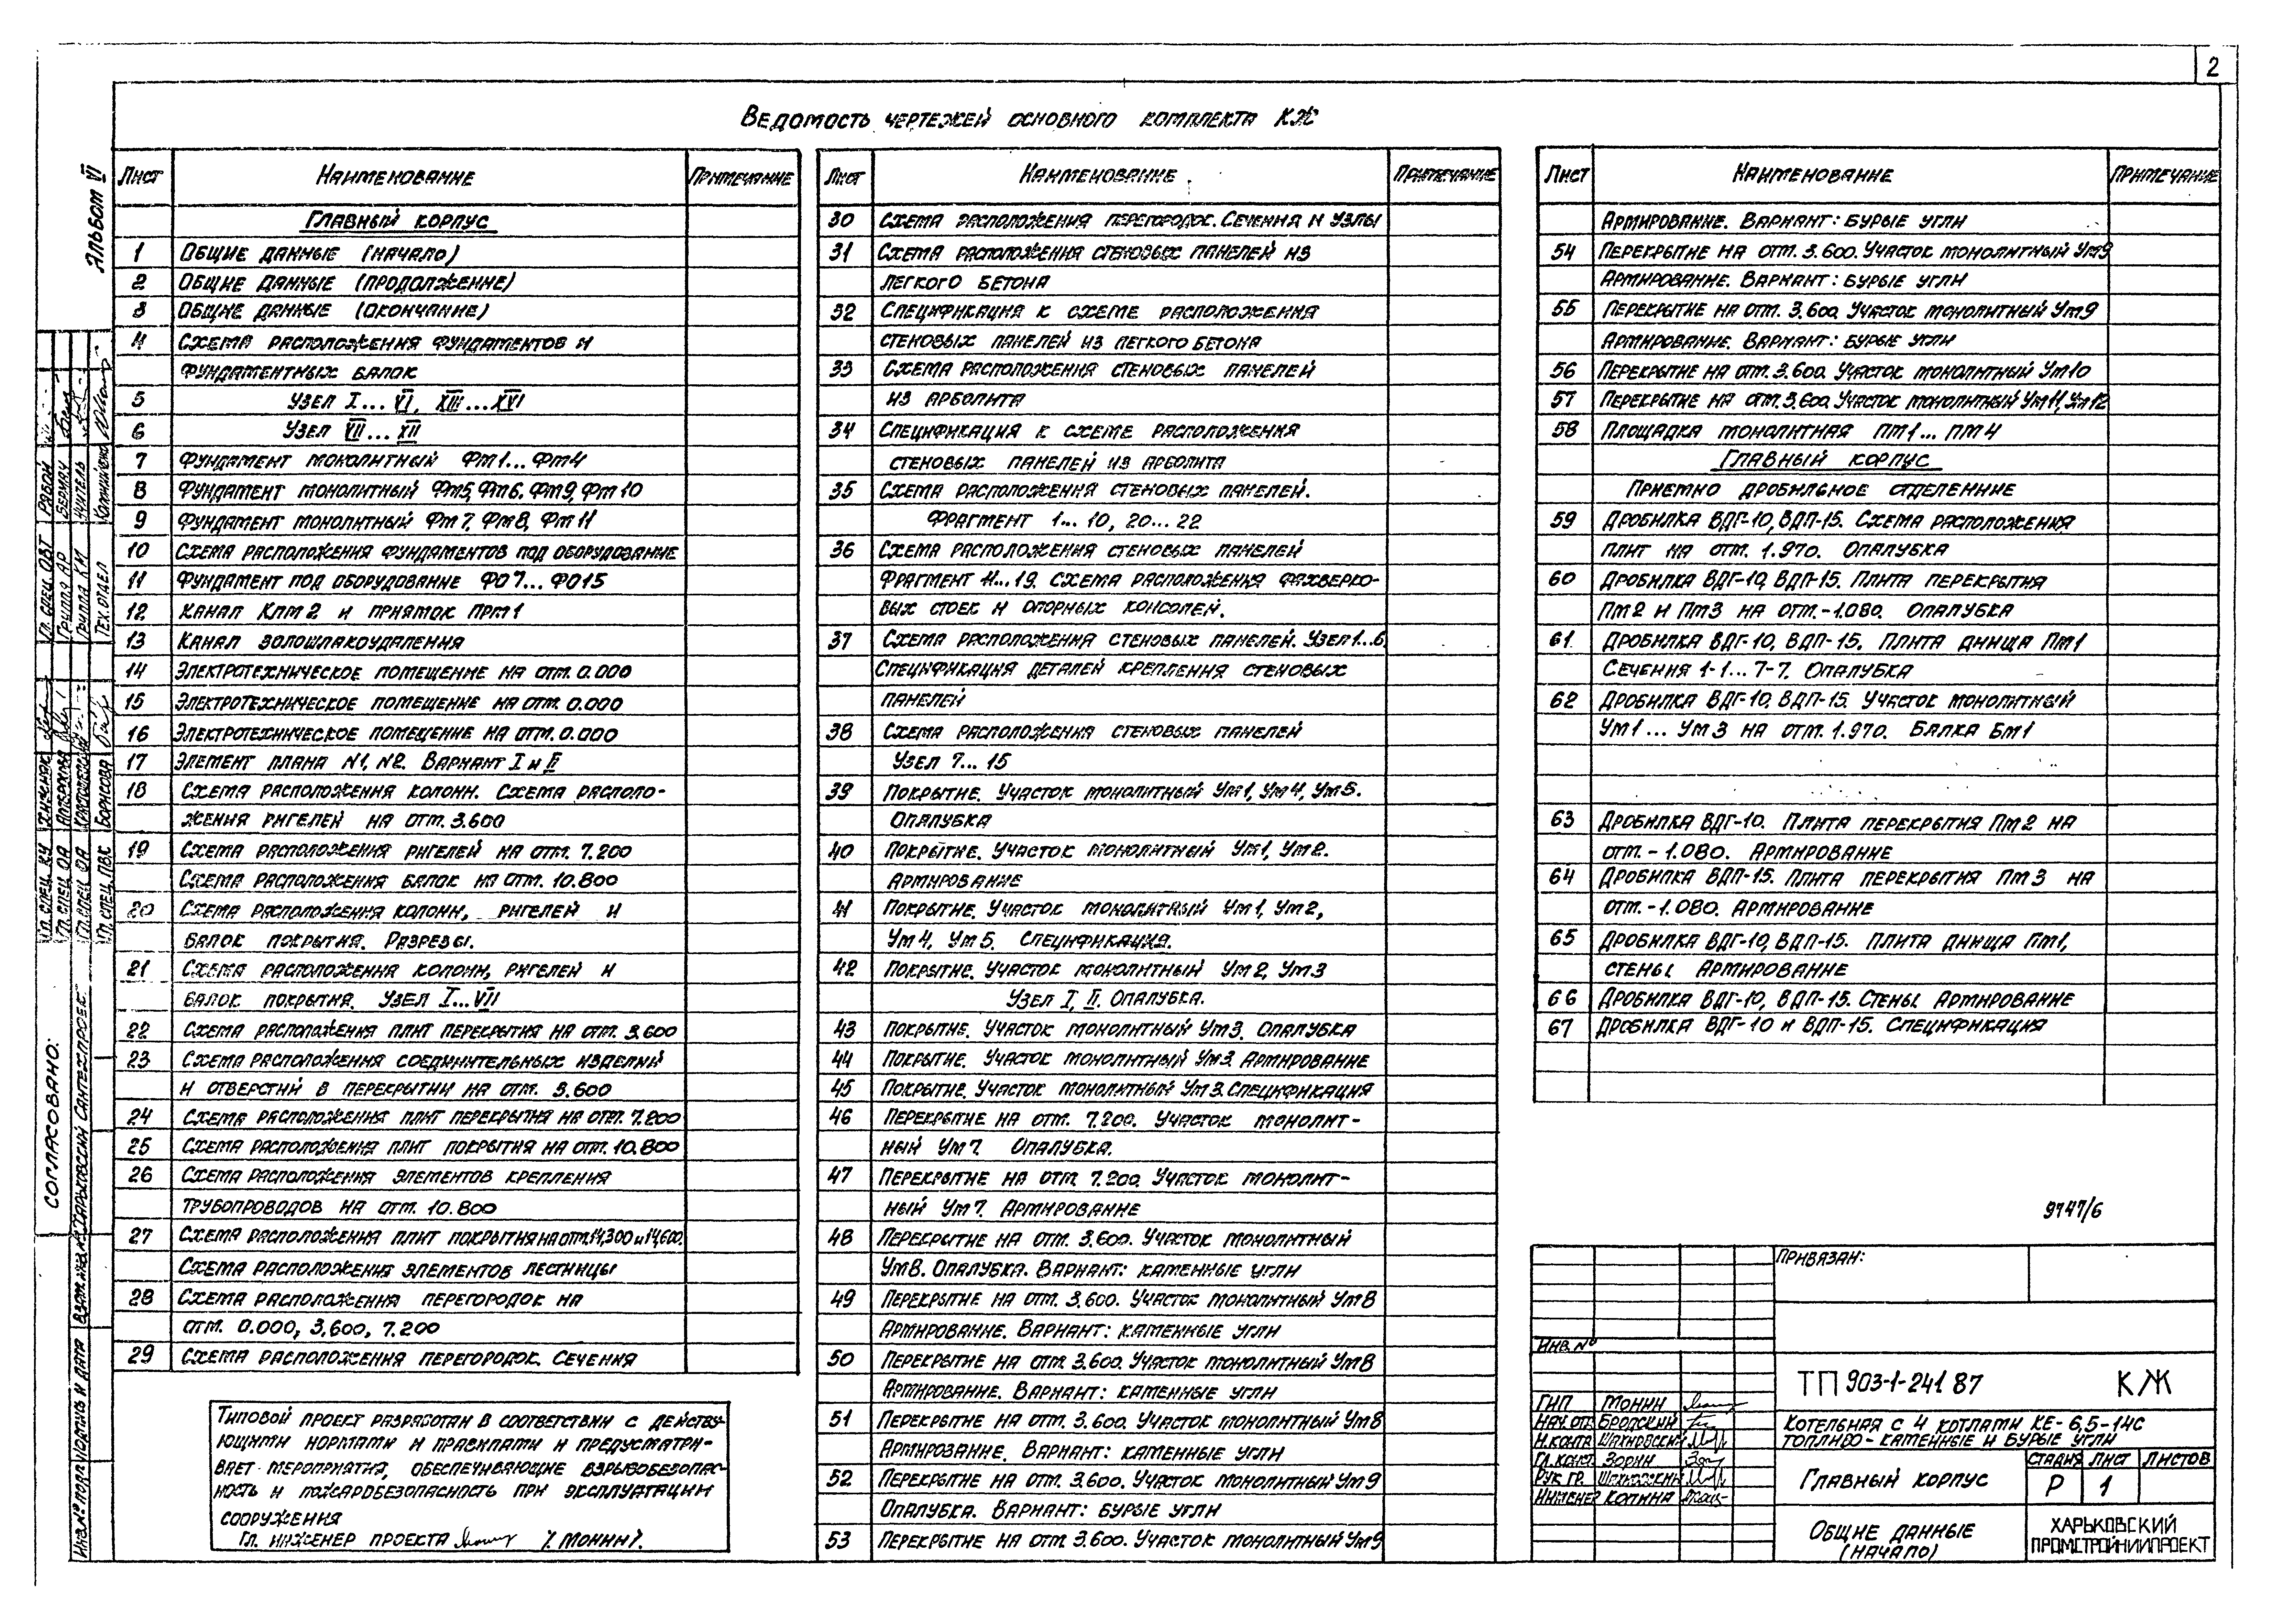 2
Ведомость чертежей основного комплекта КЖ
Альбом VI
Лист Наименование Примечание
Главный корпус
1 Общие данные (начало)
2 Общие данные (продолжение)
3 Общие данные (окончание)
4 Схема расположения фундаментов и
фундаментных балок
5 Узел I... VI, XIII...XVI
6 Узел VII... XII
7 Фундамент монолитный Фм1... Фм4
8 Фундамент монолитный Фм5, Фм6, Фм9, Фм10
9 Фундамент монолитный Фм7, Фм8, Фм11
10 Схема расположения фундаментов под оборудование
11 Фундамент под оборудование ФО7... ФО15
12 Канал Клм2 и приямок Прм1
13 Канал золошлакоудаления
14 Электротехническое помещение на отм. 0.000
15 Электротехническое помещение на отм. 0.000
16 Электротехническое помещение на отм. 0.000
17 Элемент плана N1, N2. Вариант I и II
18 Схема расположения колонн. Схема располо-
жения ригелей на отм. 3.600
19 Схема расположения ригелей на отм. 7.200
Схема расположения балок на отм. 10.800
20 Схема расположения колонн, ригелей и
балок покрытия. Разрезы.
21 Схема расположения колонн, ригелей и
балок покрытия. Узел I...VII
22 Схема расположения плит перекрытия на отм. 3.600
23 Схема расположения соединительных изделий
и отверстий в перекрытии на отм. 3.600
24 Схема расположения плит перекрытия на отм. 7.200
25 Схема расположения плит покрытия на отм. 10.800
26 Схема расположения элементов крепления
трубопроводов на отм. 10.800
27 Схема расположения плит покрытия на отм. 14,300 и 14,600.
Схема расположения элементов лестницы
28 Схема расположения перегородок на
отм. 0.000, 3,600, 7.200
29 Схема расположения перегородок. Сечения
Типовой проект разработан в соответствии с действу-
ющими нормами и правилами и предусматри-
вает мероприятия, обеспечивающие взрывобезопас-
ность и пожаробезопасность при эксплуатации
сооружения
Гл. инженер проекта /Монин/.
Лист Наименование Примечание
30 Схема расположения перегородок. Сечения и узлы
31 Схема расположения стеновых панелей из
легкого бетона
32 Спецификация к схеме расположения
стеновых панелей из легкого бетона
33 Схема расположения стеновых панелей
из арболита
34 Спецификация к схеме расположения
стеновых панелей из арболита
35 Схема расположения стеновых панелей.
Фрагмент 1... 10, 20... 22
36 Схема расположения стеновых панелей
Фрагмент 11... 19. Схема расположения фахверко-
вых стоек и опорных консолей.
37 Схема расположения стеновых панелей. Узел 1...6
Спецификация деталей крепления стеновых
панелей
38 Схема расположения стеновых панелей
Узел 7... 15
39 Покрытие. Участок монолитный Ум1, Ум4, Ум5.
Опалубка
40 Покрытие. Участок монолитный Ум1, Ум2.
Армирование
41 Покрытие. Участок монолитный Ум1, Ум2,
Ум4, Ум5. Спецификация.
42 Покрытие. Участок монолитный Ум2, Ум3
Узел I, II. Опалубка.
43 Покрытие. Участок монолитный Ум3. Опалубка
44 Покрытие. Участок монолитный Ум3. Армирование
45 Покрытие. Участок монолитный Ум3. Спецификация
46 Перекрытие на отм. 7.200. Участок монолит-
ный Ум7. Опалубка.
47 Перекрытие на отм. 7.200. Участок монолит-
ный Ум7. Армирование
48 Перекрытие на отм. 3.600. Участок монолитный
Ум8. Опалубка. Вариант: каменные угли
49 Перекрытие на отм. 3.600. Участок монолитный Ум8
Армирование. Вариант: каменные угли
50 Перекрытие на отм. 3.600. Участок монолитный Ум8
Армирование. Вариант: каменные угли
51 Перекрытие на отм. 3.600. Участок монолитный Ум8
Армирование. Вариант: каменные угли
52 Перекрытие на отм. 3.600. Участок монолитный Ум9
Опалубка. Вариант: бурые угли
53 Перекрытие на отм. 3.600. Участок монолитный Ум9
Лист Наименование Примечание
Армирование. Вариант: бурые угли
54 Перекрытие на отм. 3.600. Участок монолитный Ум9
Армирование. Вариант: бурые угли
55 Перекрытие на отм. 3.600. Участок монолитный Ум9
Армирование. Вариант: бурые угли
56 Перекрытие на отм. 3.600. Участок монолитный Ум10
57 Перекрытие на отм. 3.600. Участок монолитный Ум11, Ум12
58 Площадка монолитная Пм1... Пм4
Главный корпус
Приемно дробильное отделение
59 Дробилка ВДГ-10, ВДП-15. Схема расположения
плит на отм. 1.970. Опалубка
60 Дробилка ВДГ-10, ВДП-15. Плита перекрытия
Пм2 и Пм3 на отм.-1.080. Опалубка
61 Дробилка ВДГ-10, ВДП-15. Плита днища Пм1
Сечения 1-1... 7-7. Опалубка
62 Дробилка ВДГ-10, ВДП-15. Участок монолитный
Ум1... Ум3 на отм. 1.970. Балка Бм1
63 Дробилка ВДГ-10. Плита перекрытия Пм2 на
отм.-1.080. Армирование
64 Дробилка ВДП-15. Плита перекрытия Пм3 на
отм.-1.080. Армирование
65 Дробилка ВДГ-10, ВДП-15. Плита днища Пм1,
стены. Армирование
66 Дробилка ВДГ-10, ВДП-15. Стены. Армирование
67 Дробилка ВДГ-10 и ВДП-15. Спецификация
9747/6
Привязан:
Инв. №
ТП 903-1-241 87 КЖ
Котельная с 4 котлами КЕ-6,5-14С
Топливо-каменные и бурые угли
Главный корпус
Стадия Лист Листов
Р 1
Общие данные
(начало)
ХАРЬКОВСКИЙ
ПРОМСТРОЙНИИПРОЕКТ
ГИП Монин
Нач. от. Бродский
Н.контр Шахновский
Гл. конст. Зорин
Рук. гр. Шахновский
Инженер Копина
Согласовано:
Харьковский Сантехпроект
Гл. спец. ОВТ
Группа АР
Группа КМ
Тех. отдел
Гл. спец. КУ
Гл. спец. ОА
Гл. спец. ОА
Гл. спец. ПВС Борисова
Взам. инв. №
Подпись и дата
Инв. № подл.